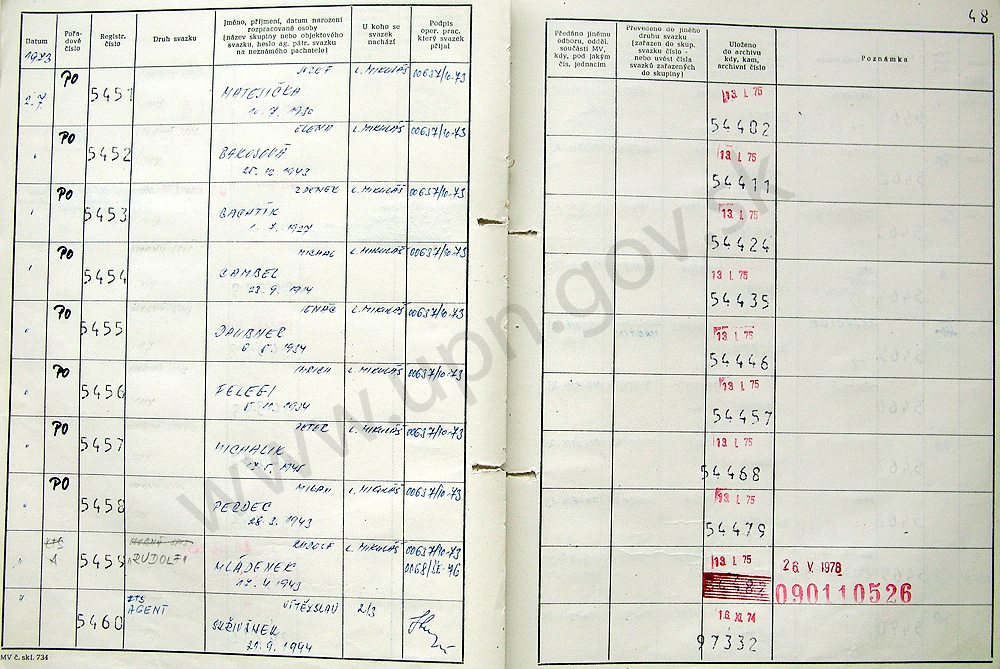 Datum
Pořa-
dové
číslo
Registr.
číslo
Druh svazku
Jméno, příjmení, datum narození
rozpracované osoby
(název skupiny nebo objektového
svazku, heslo ag. pátr. svazku
na neznámého pachatele)
U koho se
svazek
nachází
Podpis
oper. prac.
který svazek
přijal
1973
2.7. PO 5451 JOZEF L. MIKULÁŠ 00637/10-73
MATEJIČKA
10. 7. 1930
" PO 5452 L. MIKULÁŠ 00637/10-73
BAKOSOVÁ
25. 12. 1943
" PO 5453 ZDENEK L. MIKULÁŠ 00637/10-73
BACHTÍK
1. 7. 1927
" PO 5454 MICHAL L. MIKULÁŠ 00637/10-73
CAMBEL
23. 9. 1914
" PO 5455 IGNÁC L. MIKULÁŠ 00637/10-73
DAUBNER
6. 5. 1934
" PO 5456 L. MIKULÁŠ 00637/10-73
FELEGI
1934
" PO 5457 PETER L. MIKULÁŠ 00637/10-73
MICHALÍK
17. 5. 1945
" PO 5458 MILAN L. MIKULÁŠ 00637/10-73
PERDEC
28. 3. 1943
" A 5459 "RUDOLF" RUDOLF L. MIKULÁŠ 00637/10-73
MLÁDENEK 0068/
17. 4. 1943
" 5460 ZTS AGENT VÍTĚZSLAV 2/3
SKŘIVÁNEK
21. 9. 1944
MV č. skl. 734
48
Předáno jinému
odboru, odděl.
součásti MV,
kdy, pod jakým
čís. jednacím
Převedeno do jiného
druhu svazku
(zařazen do skup.
svazku číslo -
nebo uvést čísla
svazků zařazených
do skupiny)
Uloženo
do archivu
kdy, kam,
archivní číslo
Poznámka
13. I. 75
54402
13. I. 75
54411
13. I. 75
54424
13. I. 75
54435
13. I. 75
54446
13. I. 75
54457
13. I. 75
54468
13. I. 75
54479
13. I. 75
26 V. 1978
090110526
16. XI. 74
97332
www.upn.gov.sk